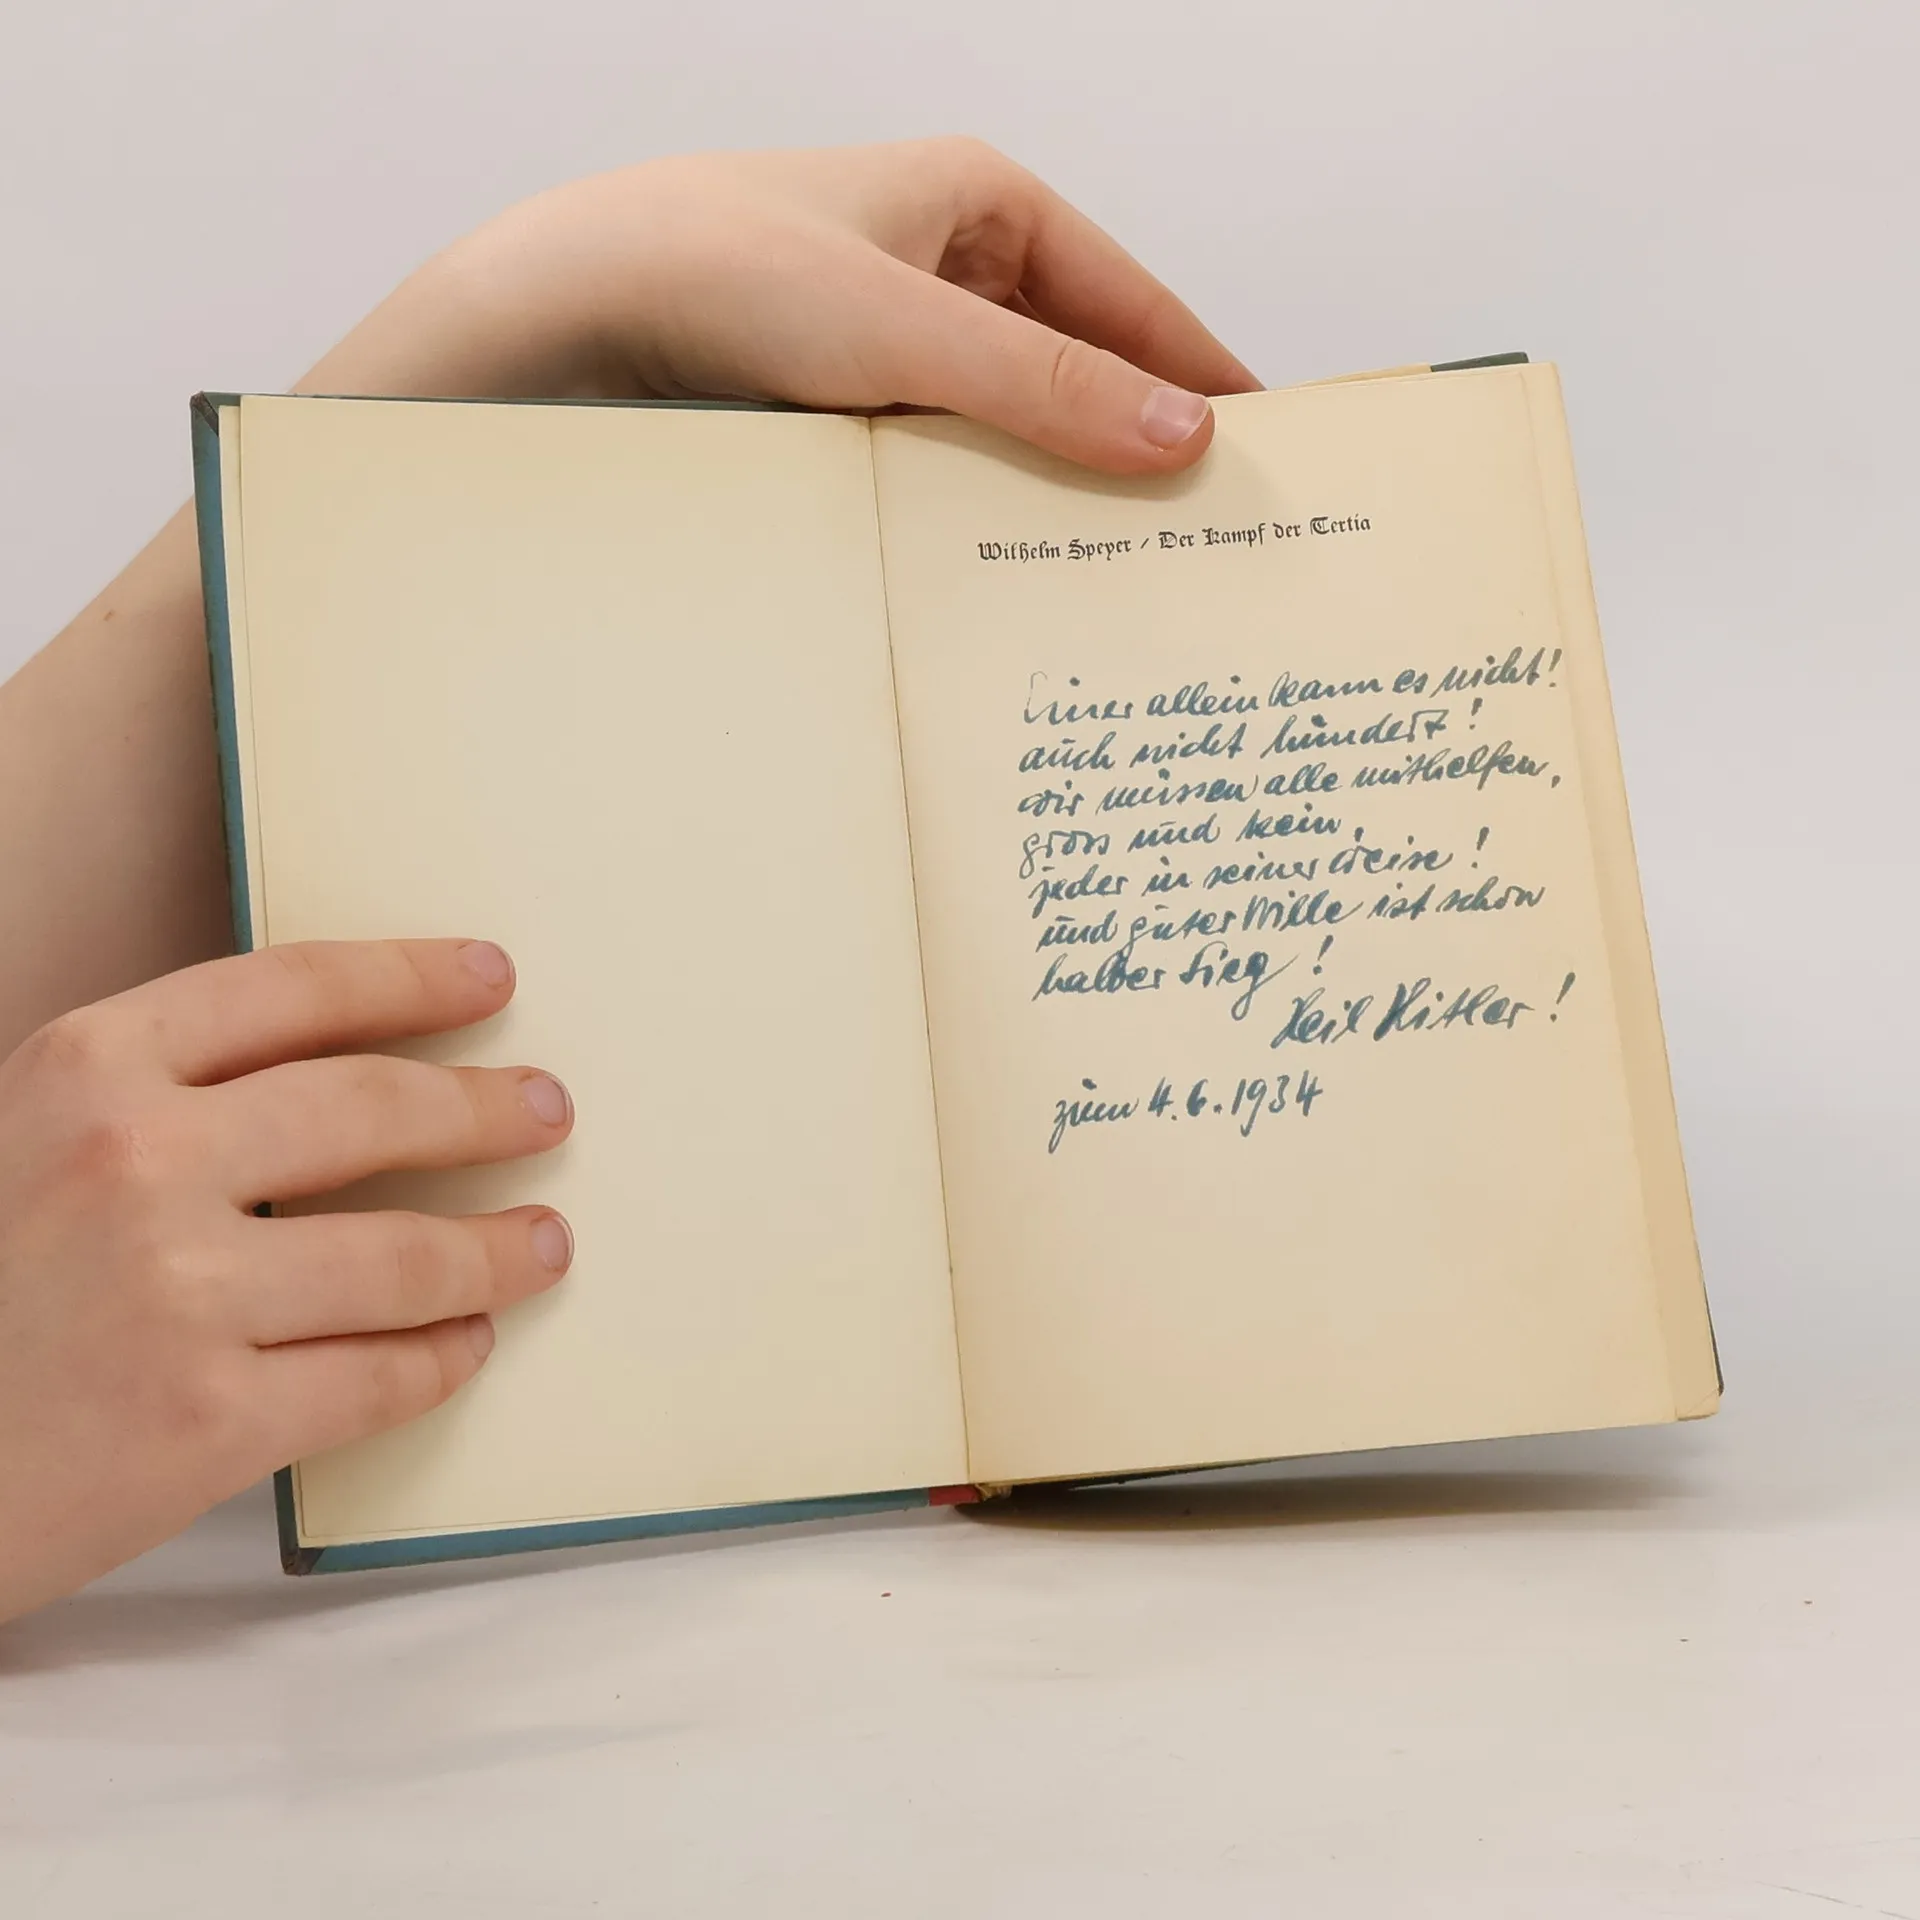 Wilhelm Speyer / Der Kampf der Tertia
Einer allein kann es nicht!
auch nicht hundert!
wir müssen alle mithelfen,
gross und kein,
jeder in seiner Weise!
und guter Wille ist schon
halber Sieg!
Heil Hitler!
zum 4.6.1934